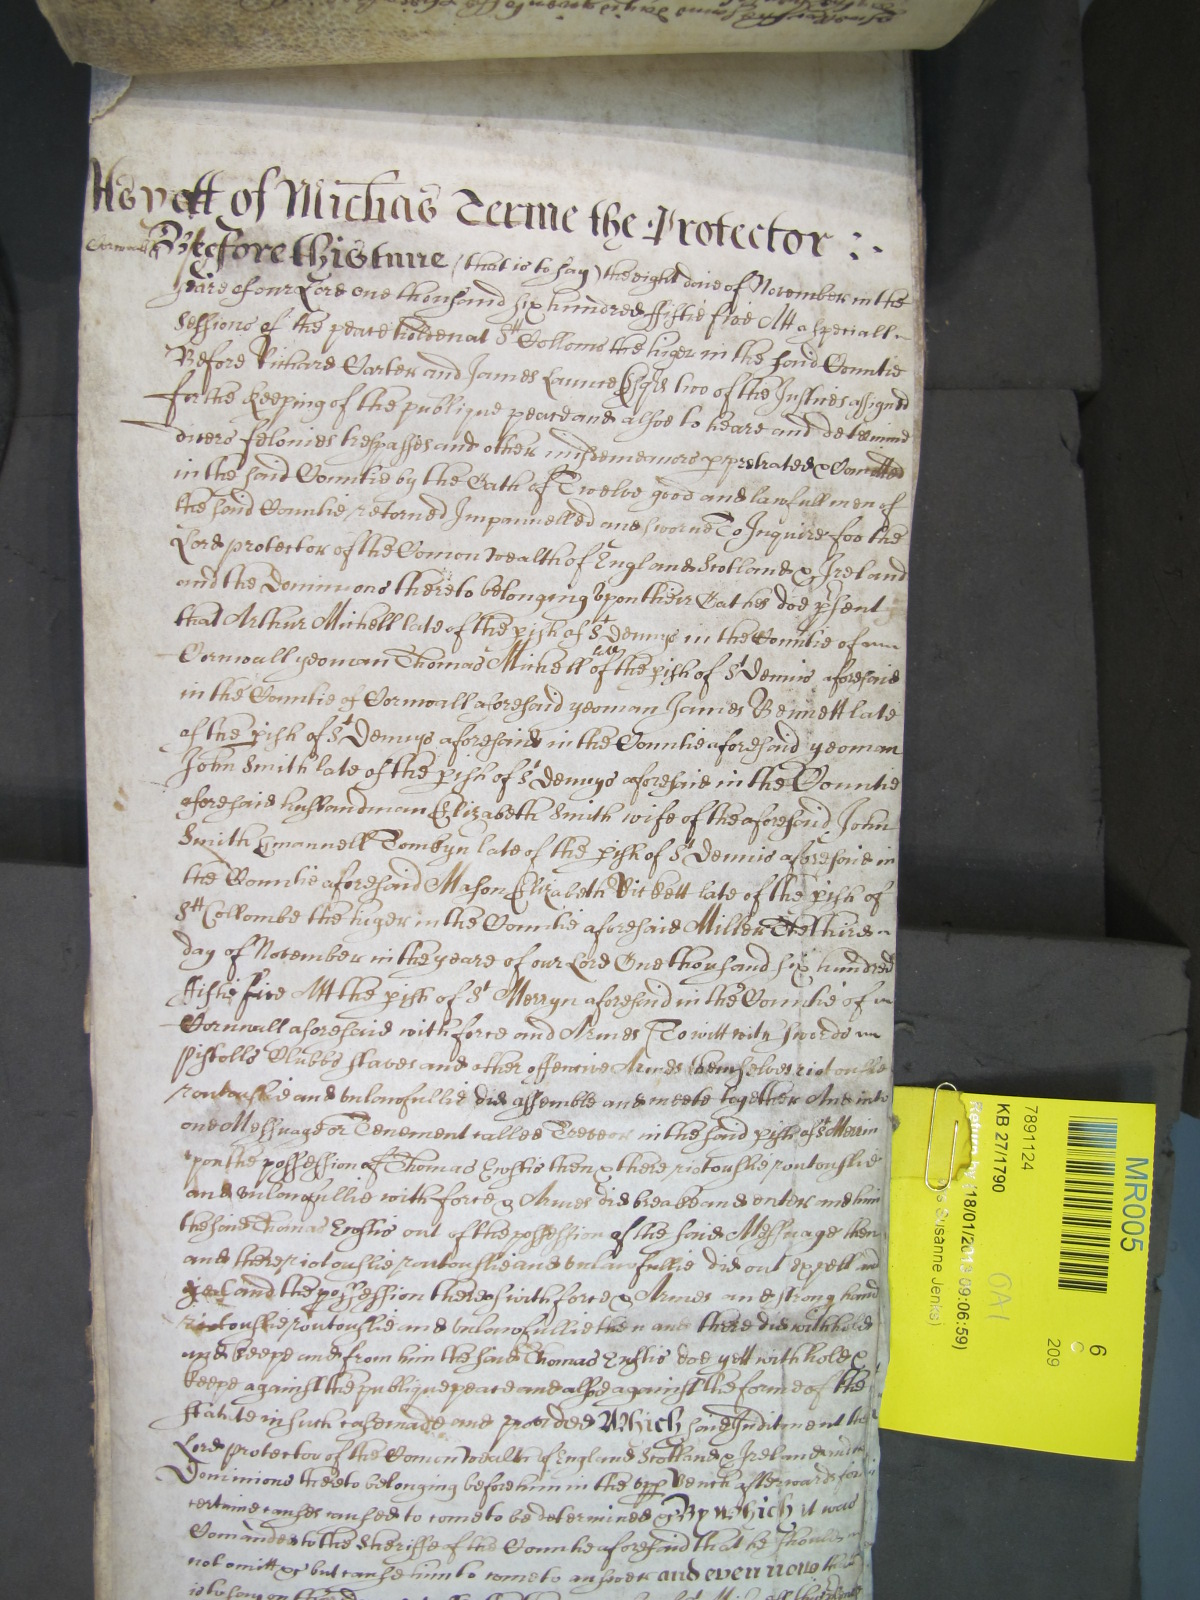 As yett of Michas Terme the Protector :-
Cornwall Before this time (that is to say) the eight daie of November in the
yeare of our Lord one thousand six hundred fiftie five Att a speciall
Sessions of the peace holden at St Collomb the higer in the said Countie
Before Richard Carter and James Launce Esqrs two of the Justices assigned
for the keeping of the publique peace and alsoe to heare and determine
divers felonies trespasses and other misdemeanors ppetrated & Comitted
in the said Countie by the Oath of Twelve good and lawfull men of
the said Countie retorned Impannelled and sworne To Inquire for the
Lord protector of the Comon wealth of England Scotland & Ireland
and the Dominions thereto belonging Upon their Oathes doe psent
that Arthur Michell late of the pish of St Dennys in the Countie of
Cornwall yeoman Thomas Michell late of the pish of St Dennis aforesaid
in the Countie of Cornwall aforesaid yeoman James Bennett late
of the pish of St Dennys aforesaid in the Countie aforesaid yeoman
John Smith late of the pish of St Dennys aforesaid in the Countie
aforesaid husbandman Elizabeth Smith wife of the aforesaid John
Smith Emanuell Tombyn late of the pish of St Dennis aforesaid in
the Countie aforesaid Mason Elizabeth Rickett late of the pish of
St Collombe the higer in the Countie aforesaid Miller The third
day of November in the yeare of our Lord One thousand six hundred
fiftie five Att the pish of St Merryn aforesaid in the Countie of
Cornwall aforesaid with force and Armes (To witt with swords
pistolls Clubbs staves and other offensive Armes themselves riotouslie
routouslie and unlawfullie did assemble and meete together And into
one Messuage or Tenement called in the said pish of St Merrin
pon the possession of Thomas then & there riotouslie routouslie
and unlawfullie with force & Armes did breake and enter and him
the said Thomas out of the possession of the said Messuage then
and there riotouslie routouslie and unlawfullie did out expell and
and the possession thereof with force & Armes and strong hand
riotouslie routouslie and unlawfullie then and there did withhold
and keepe and from him the said Thomas doe yett withhold &
keepe against the publique peace and alsoe against the forme of the
statute in such case made and provided Which said Inditement the
Lord protector of the Comon wealth of England Scotland & Ireland and the
Dominions thereto belonging before him in the upp Bench afterwards for
certaine causes caused to come to be determined & By which it was
Comanded to the Sheriffe of the Countie aforesaid that he should
not omitt &c but cause him to come to answer and even now that
is to say on
MR005
6
C
209
7891124
KB 27/1790
OA1
Return by (18/01/2019 09:06:59)
Susanne Jenks)